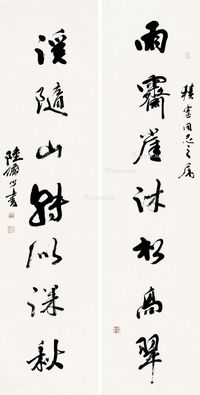 積雲同志之属
雨霽崖沐松高翠
溪隨山轉似深秋
陸儼少書